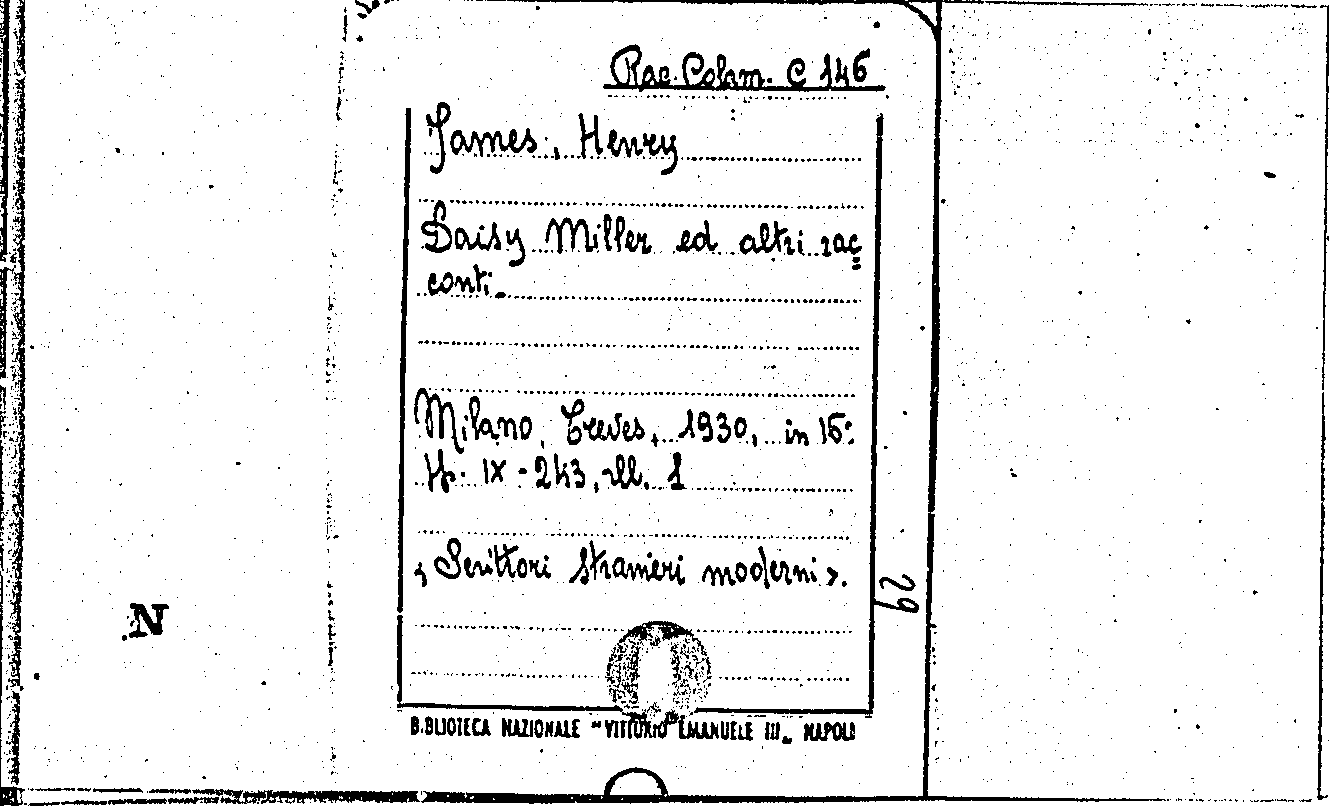 Rac. Colam. C 146
James, Henry
Daisy Miller ed altri rac
conti.
Milano, Treves, 1930, in 16°
pp. IX - 243, ill. 1
« Scrittori stranieri moderni ».
29
N
BIBLIOTECA NAZIONALE "VITTORIO EMANUELE III" NAPOLI